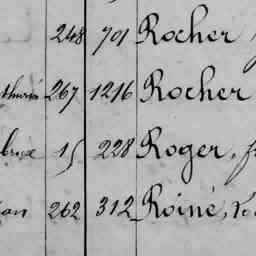 248 701 Rocher
267 1216 Rocher
15 228 Roger,
262 312 Roiné,